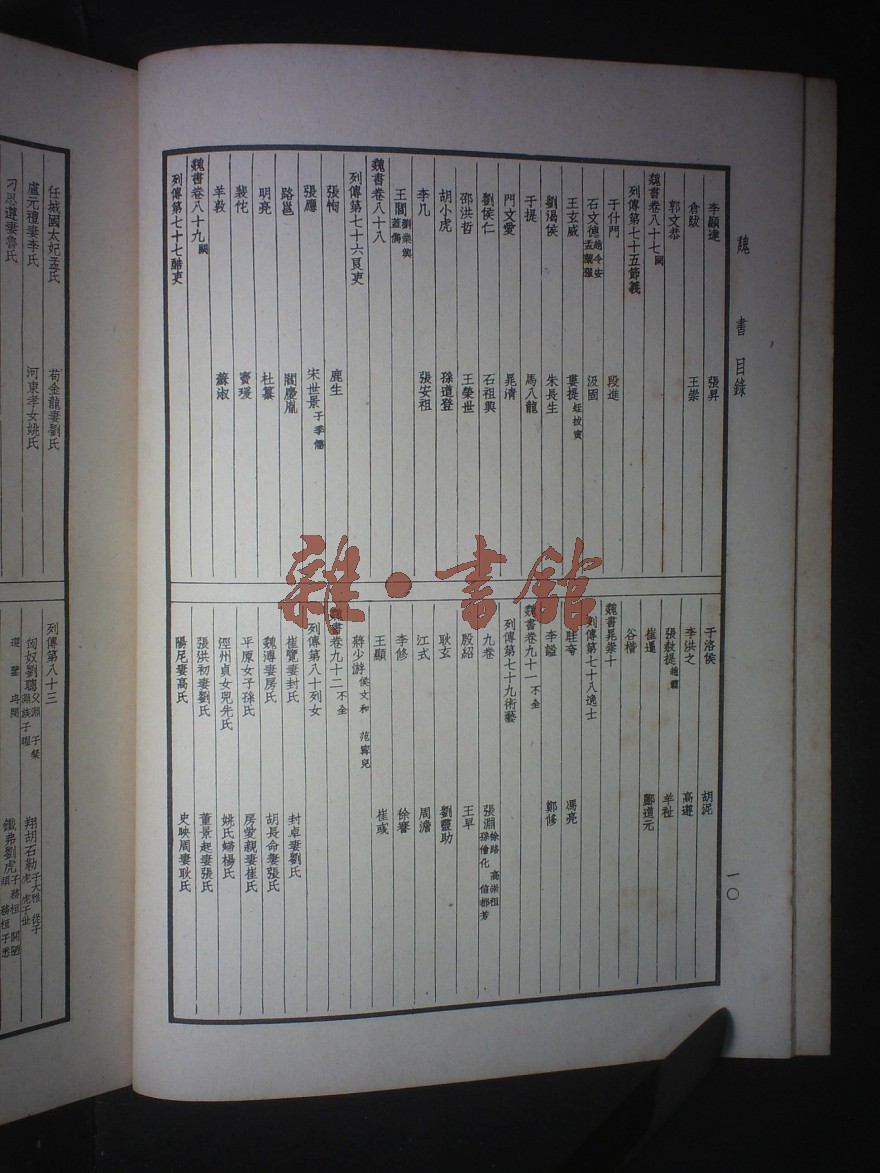 魏書目錄
一〇
李顯達 張昇
倉跋 王崇
郭文恭
魏書卷八十七闕
列傳第七十五節義
于什門 段進
石文德趙令安孟蘭彊 汲固
王玄威 婁提蛭拔寅
劉渴侯 朱長生
于提 馬八龍
門文愛 晁清
劉侯仁 石祖興
邵洪哲 王榮世
胡小虎 孫道登
李几 張安祖
王閭劉業興蓋儁
魏書卷八十八
列傳第七十六良吏
張恂 鹿生
張應 宋世景子季儒
路邕 閻慶胤
明亮 杜纂
裴佗 竇瑗
羊敦 蘇淑
魏書卷八十九闕
列傳第七十七酷吏
于洛侯 胡泥
李洪之 高遵
張赦提趙霸 羊祉
崔暹 酈道元
谷楷
魏書卷九十
列傳第七十八逸士
眭夸 馮亮
李謐 鄭修
魏書卷九十一不全
列傳第七十九術藝
九卷 張淵徐路 高崇祖孫僧化 信都芳
殷紹 王早
耿玄 劉靈助
江式 周澹
李修 徐謇
王顯 崔彧
蔣少游侯文和 范甯兒
魏書卷九十二不全
列傳第八十列女
崔覽妻封氏 封卓妻劉氏
魏溥妻房氏 胡長命妻張氏
平原女子孫氏 房愛親妻崔氏
涇州貞女兕先氏 姚氏婦楊氏
張洪初妻劉氏 董景起妻張氏
陽尼妻高氏 史映周妻耿氏
任城國太妃孟氏 苟金龍妻劉氏
盧元禮妻李氏 河東孝女姚氏
刁思遵妻魯氏
列傳第八十三
匈奴劉聰父淵 子粲淵族子曜 羯胡石勒子大雅 從子虎 虎子世
遵 鑒 冉閔 鐵弗劉虎子務桓
雜·書館